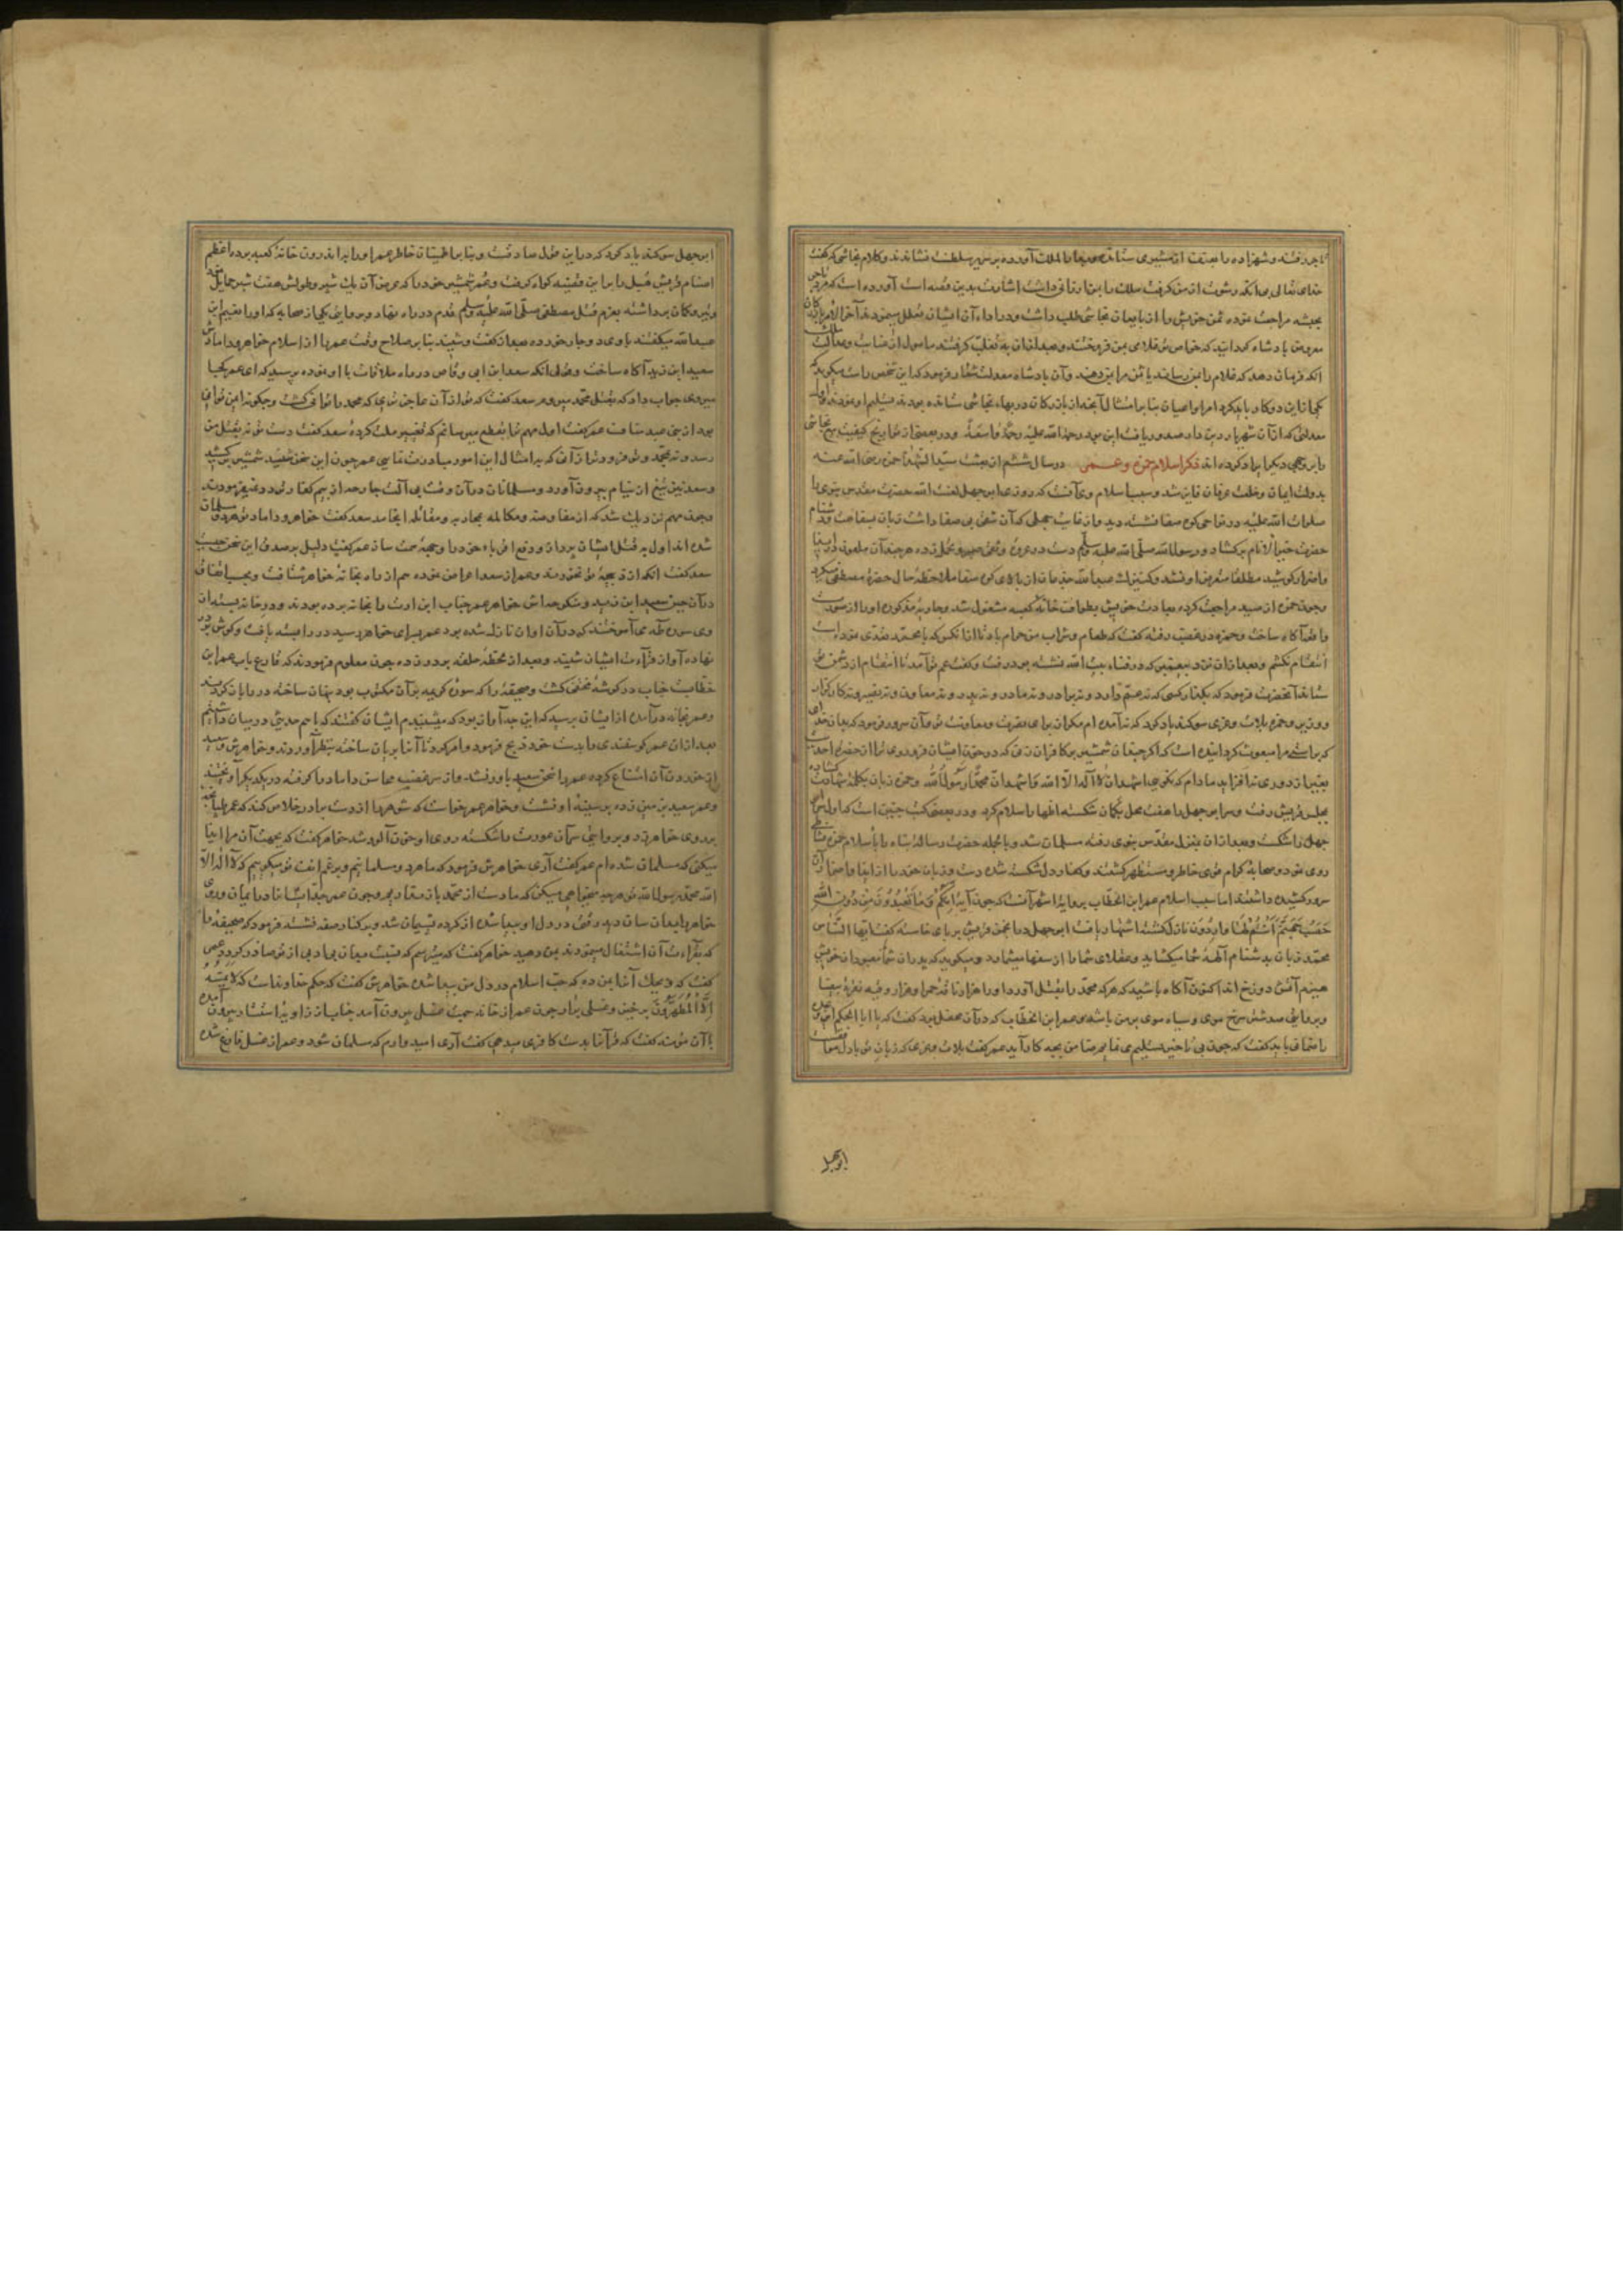 تاجر رفته و شهزاده را بعنف از مشتری ستانده بدار الملک آورده بر سریر سلطنت نشاندند و کلام نجاشی که گفت
خدای تعالی بی آنکه رشوت از من گرفت ملک را بمن ارزانی داشت اشارت بدین قصه است آورده است که مرد تاجر
بحبشه مراجعت نموده ثمن خویش را از بایعان نجاشی طلب داشت و در اداء آن ایشان تعلل مینمودند آخر الامر بازرگان
معروض پادشاه گردانید که خواص تو غلامی بمن فروختند و بعد از آن به تغلب گرفتند مامول از عنایت و عدالت
آنکه فرمان دهد که غلام را بمن رسانند یا ثمن مرا بمن دهند و آن پادشاه معدلت شعار فرمود که این شخص راست میگوید
یکی از این دو کار باید کرد امرا و اعیان بنا بر امتثال آنچه از بازرگان در بهاء نجاشی ستانده بودند تسلیم او نمودند و اول
معدلتی که از آن شهریار دین دار صدور یافت این بود رحمة الله علیه رحمة واسعة و در بعضی از تواریخ کیفیت نجاشی
را بر وجهی دیگر ایراد کرده اند ذکر اسلام حمزه و عمر در سال ششم از بعثت سید الشهدا حمزه رضی الله عنه
بدولت ایمان و خلعت عرفان فایز شد و سبب اسلام وی آنست که روزی ابوجهل لعنت الله حضرت مقدس نبوی را
صلوات الله علیه در نواحی کوه صفا نشسته دید و از غایت جهلی که آن شقی بی صفا داشت زبان بسفاهت و دشنام
حضرت خیر الانام برگشاد و رسول الله صلی الله علیه وسلم دست در عروه وثقی صبر و تحمل زده هر چند آن ملعون در ایذا
و اضرار کوشید مطلقا متعرض او نشد و کنیزک عبدالله جذعان از بالای کوه صفا ملاحظه حال حضرت مصطفی میکرد
و چون حمزه از صید مراجعت کرده بعادت خویش بطواف خانه کعبه مشغول شد و جاریه مذکوره او را از صورت
واقعه آگاه ساخت و حمزه در غضب رفته گفت که طعام و شراب بر من حرام باد تا از آنکس که با محمد تعدی نموده است
انتقام نکشم و بعد از آن نزد پیغمبر که در فناء بیت الله نشسته بود رفت و گفت عم تو آمد تا انتقام از دشمن تو
ستاند آنحضرت فرمود که بگذار کسی که نه عم دارد و نه برادر و نه مادر و نه پدر و نه معاون و نه نصیر و نه کارگزار
و وزیر و حمزه بلات و عزی سوگند یاد کرد که نه آمده ام مگر از برای نصرت و معاونت تو و آن سرور فرمود که بدان خدای
که براستی مرا مبعوث گردانیده است که اگر چندان شمشیر بر کافران زنی که در خون ایشان فرو روی ترا از حضرت احدیت
بغیر از دوری نه افزاید مادام که نگوئی اشهد ان لا اله الا الله و اشهد ان محمدا رسول الله و حمزه زبان بکلمه شهادت گشاده
بمجلس قریش رفت و سر ابوجهل را هفت محل بکمان شکسته اظهار اسلام کرد و در بعضی کتب چنین است که اول سر ابو
جهل را شکست و بعد از آن بمنزل مقدس نبوی رفته مسلمان شد و بالجمله حضرت رسالت پناه را باسلام حمزه نشاطی
روی نمود و صحابه کرام قوی خاطر و مستظهر گشتند و کفار دل شکسته شده دست و زبان خود را از ایذا و اضرار آن
سرور کشیده داشتند اما سبب اسلام عمر ابن الخطاب بروایه اشهر آنست که چون آیه انکم و ما تعبدون من دون الله
حصب جهنم انتم لها واردون نازل گشته اشتهار یافت ابوجهل در انجمن قریش بر پای خاسته گفت ایها الناس
محمد زبان بدشنام آلهه شما میکشاید و عقلای شما را از سفها میشمارد و میگوید که پدران شما معبودان خویش
هیزم آتش دوزخ اند اکنون آگاه باشید که هر که محمد را بقتل آورد او را هزار ناقه حمرا و هزار وقیه نقره بیضا
و بروایتی صد شتر سرخ موی و سیاه موی بر من باشد عمر ابن الخطاب که در آن محفل بود گفت که یا ابا الحکم این
را ضمانی باید گفت که چون بی تاخیر تسلیم می نمایم ضامن بچه کار آید عمر گفت بلات و عزی که زبان تو با دل موافقست
ابوجهل
ابوجهل سوگند یاد کرد که در این قول صادقست و بنا بر اطمینان خاطر عمر او را در اندرون خانه کعبه برده اعظم
اصنام قریش هبل را بر این قضیه گواه گرفت و عمر شمشیر خود را که عرض آن یک شبر و طولش هفت شبر حمایل
و تیر و کمان برداشته بعزم قتل مصطفی صلی الله علیه وسلم قدم در راه نهاد و بروایتی یکی از صحابه که او را نعیم ابن
عبدالله میگفتند با وی دوچار خورده بعد از گفت و شنید بنا بر صلاح وقت عمر را از اسلام خواهر و دامادش
سعید ابن زید آگاه ساخت و قولی آنکه سعد ابن ابی وقاص در راه ملاقات با او نموده پرسید که ای عمر کجا
میروی جواب داد که بقتل محمد میروم سعد گفت که تو از آن عاجزتری که محمد را توانی کشت و چگونه ایمن توانی
بود از بنی عبد مناف عمر گفت اول مهم ترا بقطع میرسانم که تغییر ملت کرده سعد گفت دست تو نه بقتل من
رسد و نه بمحمد و تو فروتر از آنی که بر امثال این امور مبادرت نمایی عمر چون این سخن شنید شمشیر بر کشید
و سعد نیز تیغ از نیام بیرون آورد و مسلمانان در آن وقت بی آلت جارحه از بیم کفار تردد نمیفرمودند
و چون مهم نزدیک شد که از مقاوضه و مکالمه بمحاربه و مقاتله انجامد سعد گفت خواهر و داماد تو هر دو مسلمان
شده اند اول به قتل ایشان پرداز عمر گفت دلیل بر صدق این سخن چیست
سعد گفت آنکه از ذبیحه تو نخورند و عمر از سعد اعراض نموده هم از راه بخانه خواهر شتافت و بحسب اتفاق
در آن حین سعید ابن زید و منکوحه اش خواهر عمر خباب ابن ارت را بخانه برده بودند و در خانه بسته از
وی سوره طه می آموختند که در آن اوان نازل شده بود عمر بسرای خواهر رسید در را بسته یافت و گوش بر در
نهاده آواز قرآءت ایشان شنید و بعد از لحظه حلقه بر در زده چون معلوم فرمودند که قارع باب عمر ابن
خطابست خباب در گوشه مختفی گشت و صحیفه را که سوره کریمه بر آن مکتوب بود پنهان ساخته در را باز کردند
و عمر بخانه درآمده از ایشان پرسید که این چه آواز بود که میشنیدم ایشان گفتند که اسم حدیثی در میان داشتیم
بعد از آن عمر گوسفندی را بدست خود ذبح فرمود و امر کرد تا آنرا بریان ساخته بنظر آوردند و خواهرش و سعید
از خوردن آن امتناع کرده عمر را سخن سعد باور فتاد و از سر غضب محاسن داماد را گرفته در یکدیگر آویختند
و عمر سعید بن زید را بر زمین زده بر سینه او نشست و خواهر عمر بخواست که شوهر را از دست برادر خلاص کند که عمر طپانچه
بر روی خواهر زد و بروایتی سر آن عورت را شکسته روی او خون آلود شد خواهر گفت که بجهت آن مرا ایذا
میکنی که مسلمان شده ام عمر گفت آری خواهرش فرمود که ما هر دو مسلمانیم و بر رغم انف تو میگوییم که لا اله الا
الله محمد رسول الله تو هر چه میخواهی میکن که ما دست از محمد باز نداریم و چون عمر جد ایشان را در ایمان
خواهر بدان سان دید رقتی در دل او پیدا شده از کرده پشیمان شد و بر کنار صفه نشسته فرمود که صحیفه را
که بقراءت آن اشتغال مینمودند بمن دهید خواهر گفت که میترسم که نسبت بدان بی ادبی از تو صادر گردد عمر
گفت که ویحک آنرا بمن ده که حب اسلام در دل من پیدا شده خواهرش گفت که حکم خداوند است که لا یمسه
الا المطهرون برخیز و غسلی برآر چون عمر از خانه جهت غسل بیرون آمد خباب از زاویه استتار بیرون آمده
با آن مومنه گفت که قرآن را بدست کافری میدهی گفت آری امیدوارم که مسلمان شود و عمر از غسل فارغ شده